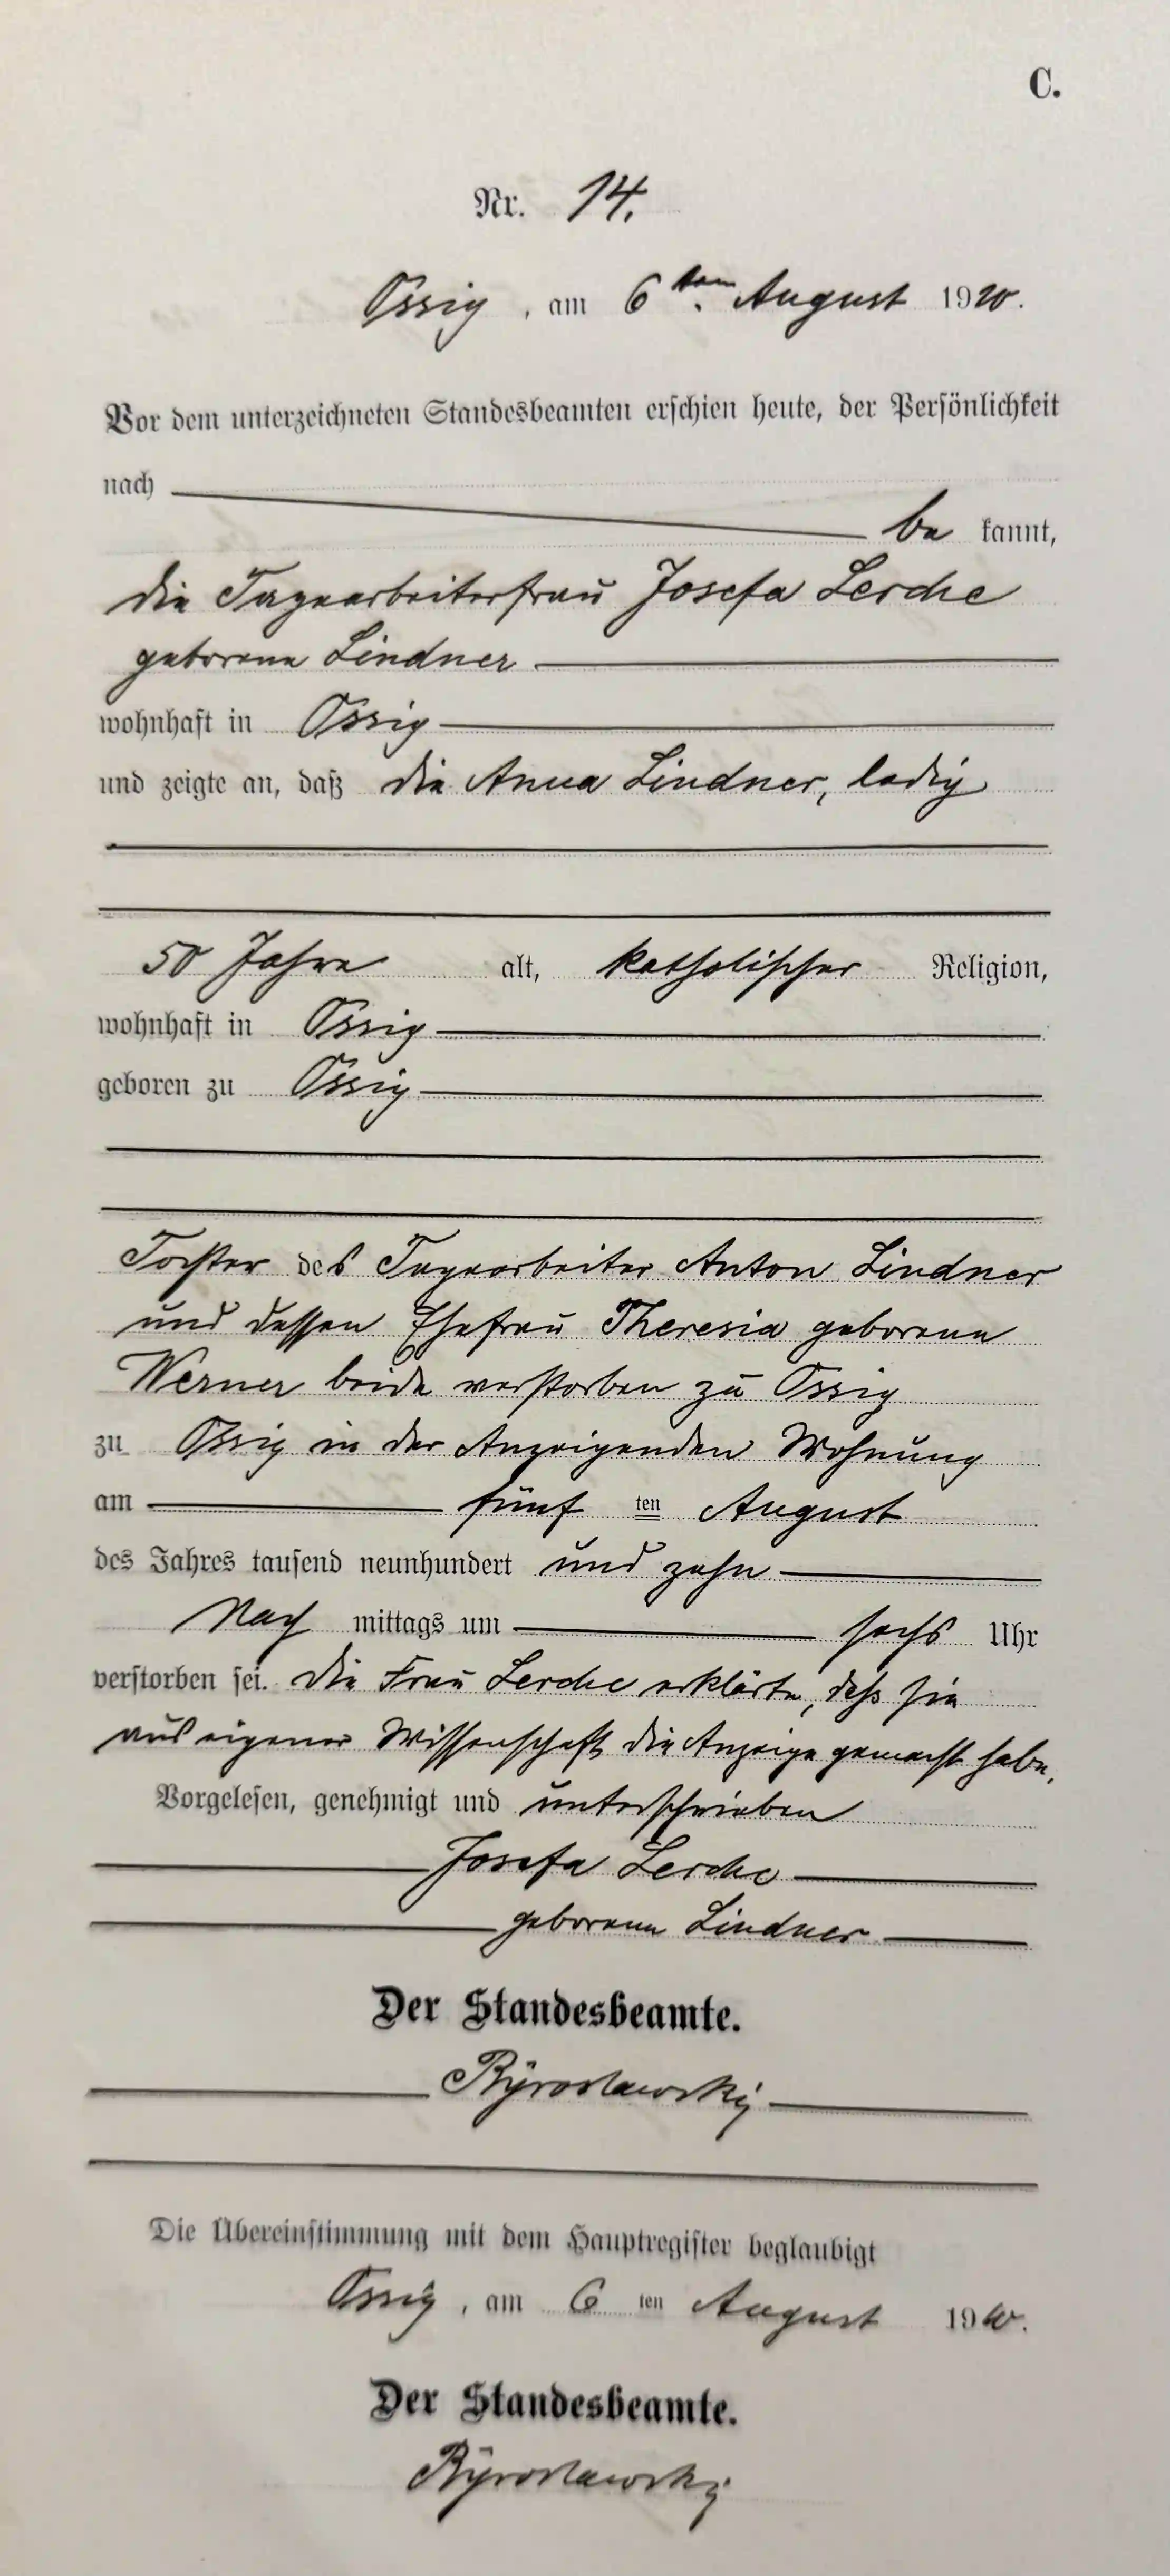 C.
Nr. 14.
Ossig, am 6ten August 1910.
Vor dem unterzeichneten Standesbeamten erschien heute, der Persönlichkeit
nach
be kannt,
die Tagearbeiterfrau Josefa Lerche
geborene Lindner
wohnhaft in Ossig
und zeigte an, daß die Anna Lindner, ledig
50 Jahre alt, katholischer Religion,
wohnhaft in Ossig
geboren zu Ossig
Tochter des Tagearbeiter Anton Lindner
und dessen Ehefrau Theresia geborene
Werner beide verstorben zu Ossig
zu Ossig in der Anzeigenden Wohnung
am fünf ten August
des Jahres tausend neunhundert und zehn
Nach mittags um sechs Uhr
verstorben sei. Die Frau Lerche erklärte, daß sie
aus eigener Wissenschaft die Anzeige gemacht habe.
Vorgelesen, genehmigt und unterschrieben
Josefa Lerche
geborene Lindner
Der Standesbeamte.
Die Übereinstimmung mit dem Hauptregister beglaubigt
Ossig, am 6 ten August 1910.
Der Standesbeamte.